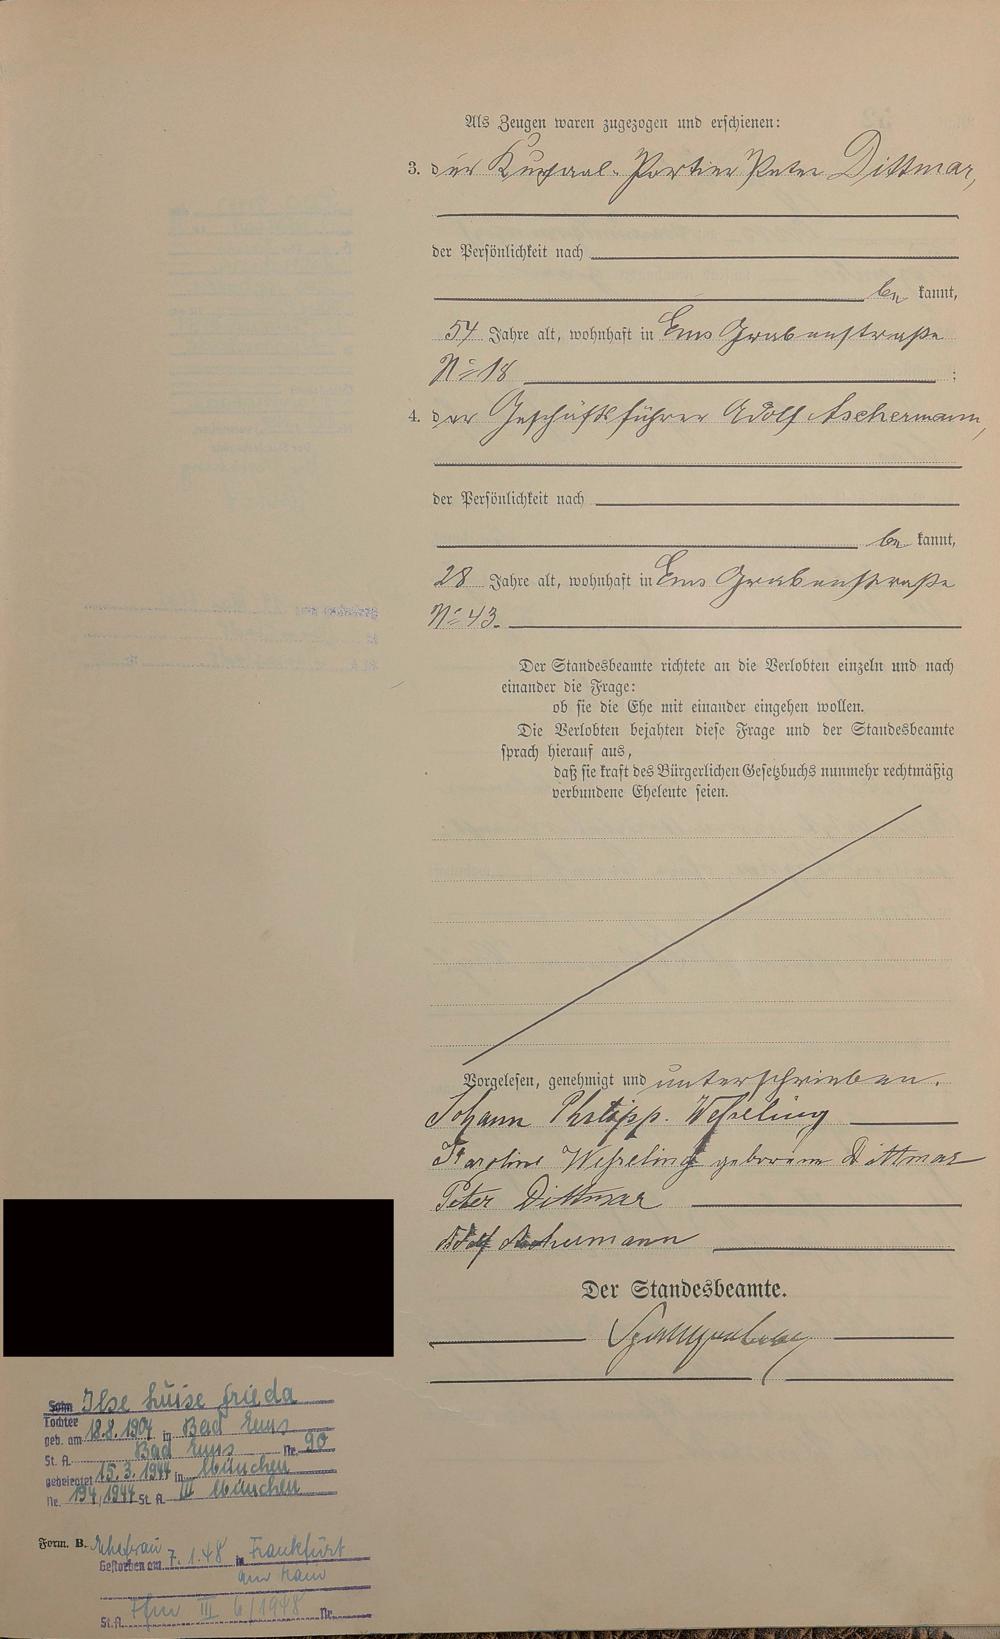 Als Zeugen waren zugezogen und erschienen:
3. der Kursaal-Portier Peter Dittmar,
der Persönlichkeit nach
be kannt,
54 Jahre alt, wohnhaft in Ems Grabenstraße
No 18 ;
4. der Geschäftsführer Adolf Aschermann,
der Persönlichkeit nach
be kannt,
28 Jahre alt, wohnhaft in Ems Grabenstraße
No 43.
Der Standesbeamte richtete an die Verlobten einzeln und nach
einander die Frage:
ob sie die Ehe mit einander eingehen wollen.
Die Verlobten bejahten diese Frage und der Standesbeamte
sprach hierauf aus,
daß sie kraft des Bürgerlichen Gesetzbuchs nunmehr rechtmäßig
verbundene Eheleute seien.
Vorgelesen, genehmigt und unterschrieben.
Johann Philipp. Weßeling
Karoline Weßeling geborene Dittmar
Peter Dittmar
Adolf Aschermann
Der Standesbeamte.
Sohn Ilse Luise Frieda
Tochter
geb. am 18.8.1904 in Bad Ems
St. A. Bad Ems Nr. 90
geheiratet 15.3.1944 in München
Nr. 194/1944 St. A. III München
Form. B. Ehefrau
Gestorben am 7.1.48 in Frankfurt
am Main
St.A. Ffm III 6/1948 Nr.